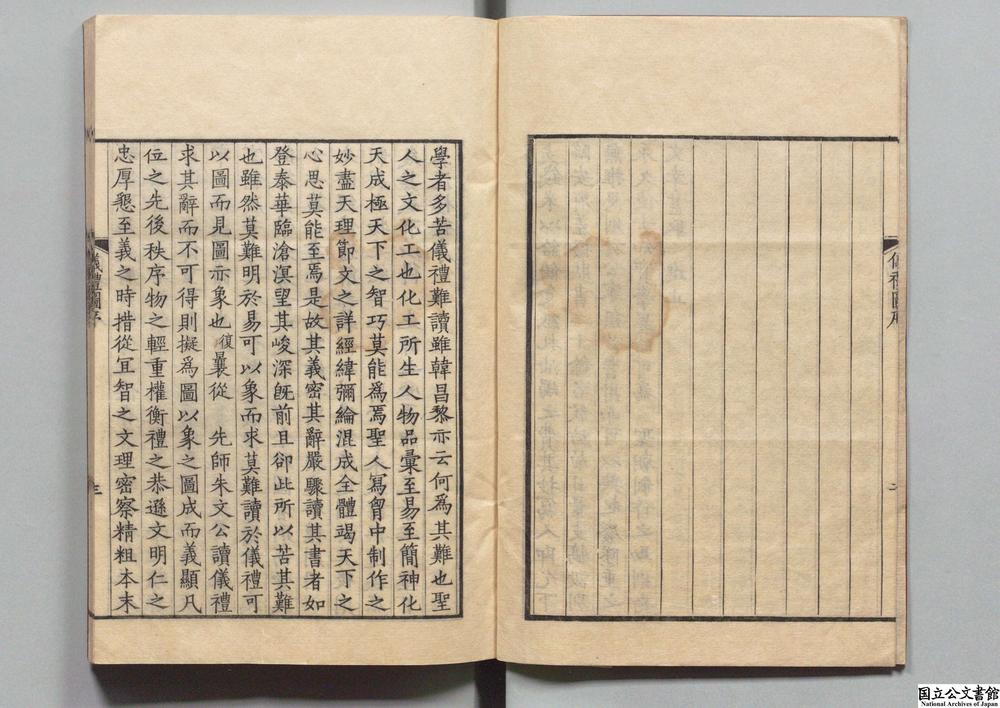 學者多苦儀禮難讀雖韓昌黎亦云何爲其難也聖
人之文化工也化工所生人物品彙至易至簡神化
天成極天下之智巧莫能爲焉聖人寫胷中制作之
妙盡天理節文之詳經緯彌綸混成全體竭天下之
心思莫能至焉是故其義密其辭嚴驟讀其書者如
登泰華臨滄溟望其峻深旣前且卻此所以苦其難
也雖然莫難明於易可以象而求莫難讀於儀禮可
以圖而見圖亦象也復曩從 先師朱文公讀儀禮
求其辭而不可得則擬爲圖以象之圖成而義顯凡
位之先後秩序物之輕重權衡禮之恭遜文明仁之
忠厚懇至義之時措從宜智之文理密察精粗本末
儀禮圖序
三
国立公文書館
National Archives of Japan